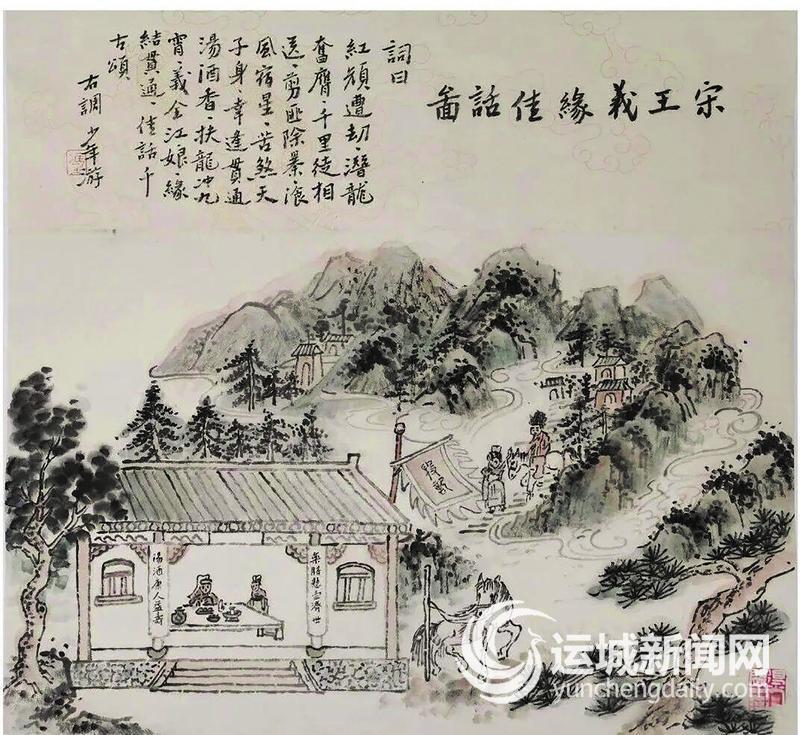 宋王義緣佳話啚
詞曰
紅顔遭劫·潛龍
奮膺·千里徒相
送·剪匪除暴·滾
風宿星·苦煞天
子身·幸逢貫通
湯酒香·扶龍沖九
霄·義全江娘·緣
結貫通·佳話千
古頌
右調 少年游
藥膳懸壺濟世
湯酒康人益壽
运城新闻网
yunchengdaily.com